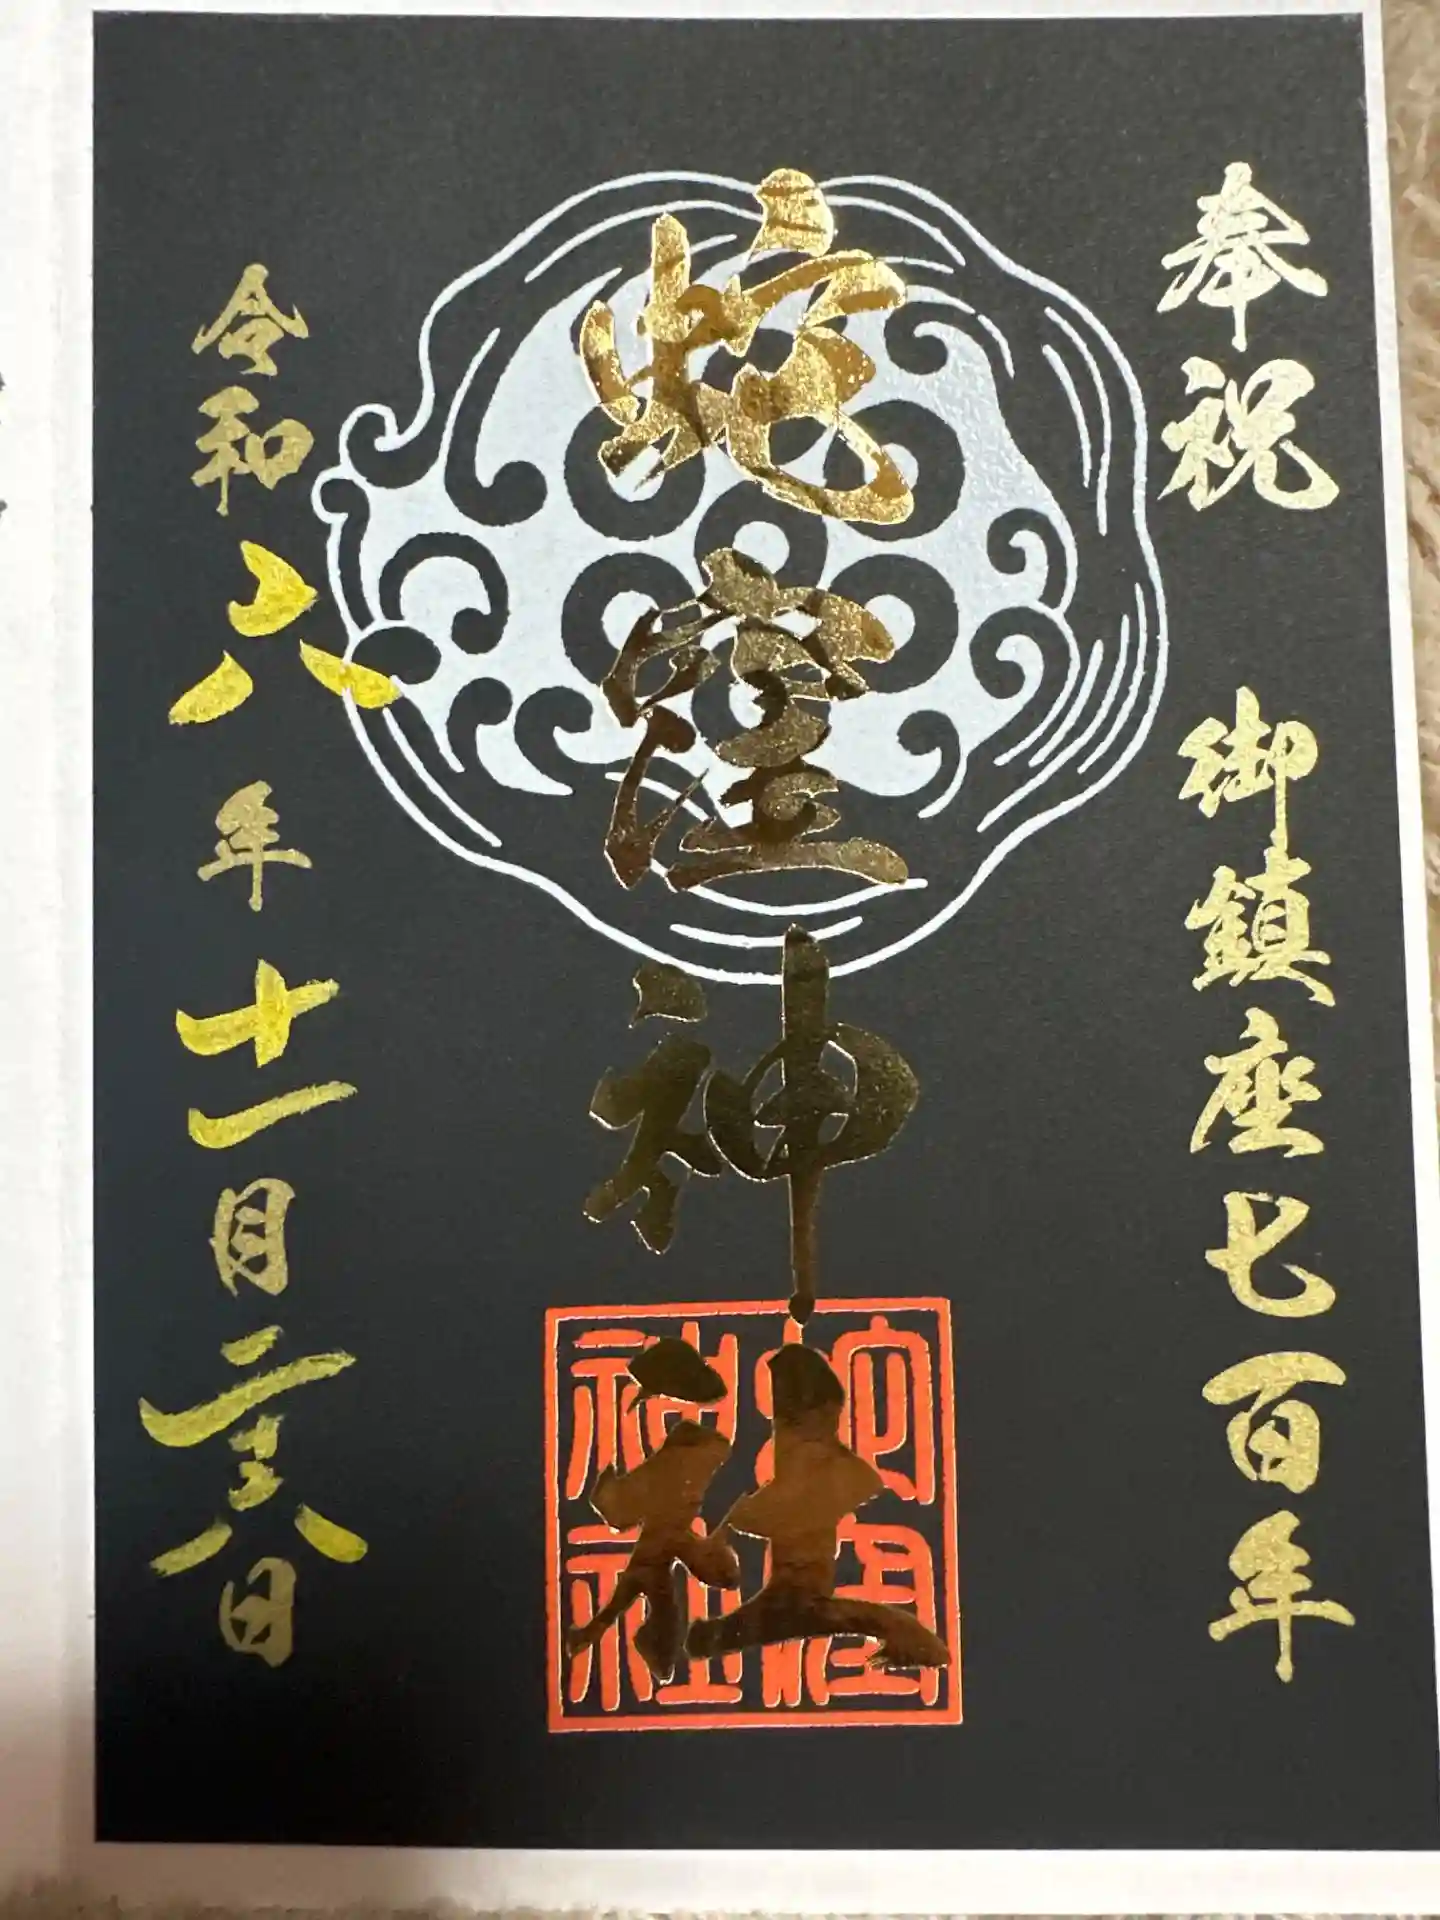 奉祝 御鎮座七百年
蛇窪神社
蛇窪神社
令和六年十一月二十六日